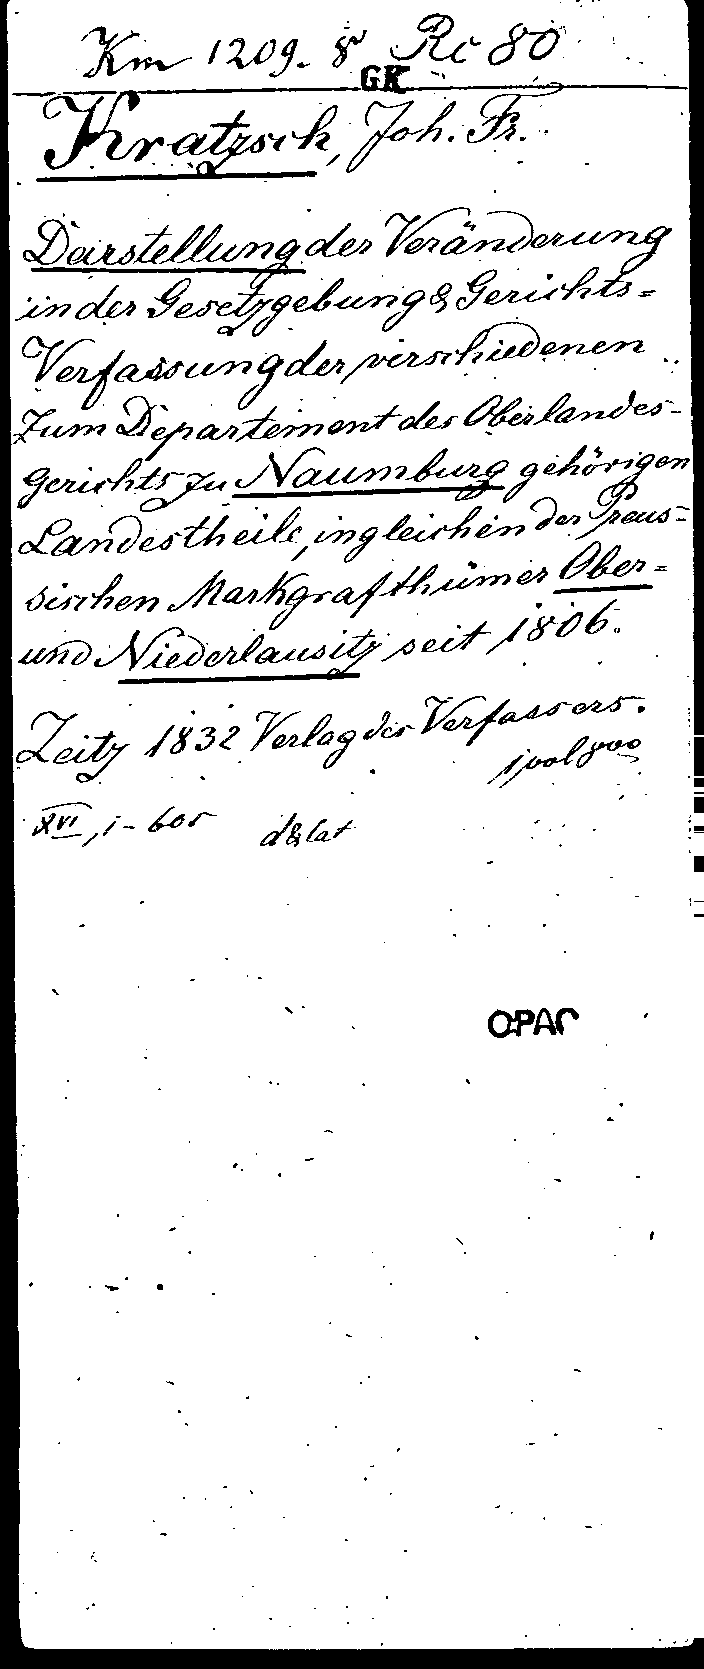 Km 1209. 8º Rc 80
GK
Kratzsch, Joh. Fr.
Darstellung der Veränderung
in der Gesetzgebung & Gerichts=
Verfassung der verschiedenen
zum Departement des Oberlandes-
Gerichts zu Naumburg gehörigen
Landestheile, ingleichen der Preus=
sischen Markgrafthümer Ober=
und Niederlausitz seit 1806.
Zeitz 1832 Verlag des Verfassers.
1 vol 8vo
XVI, 1-605 d & lat
OPAC